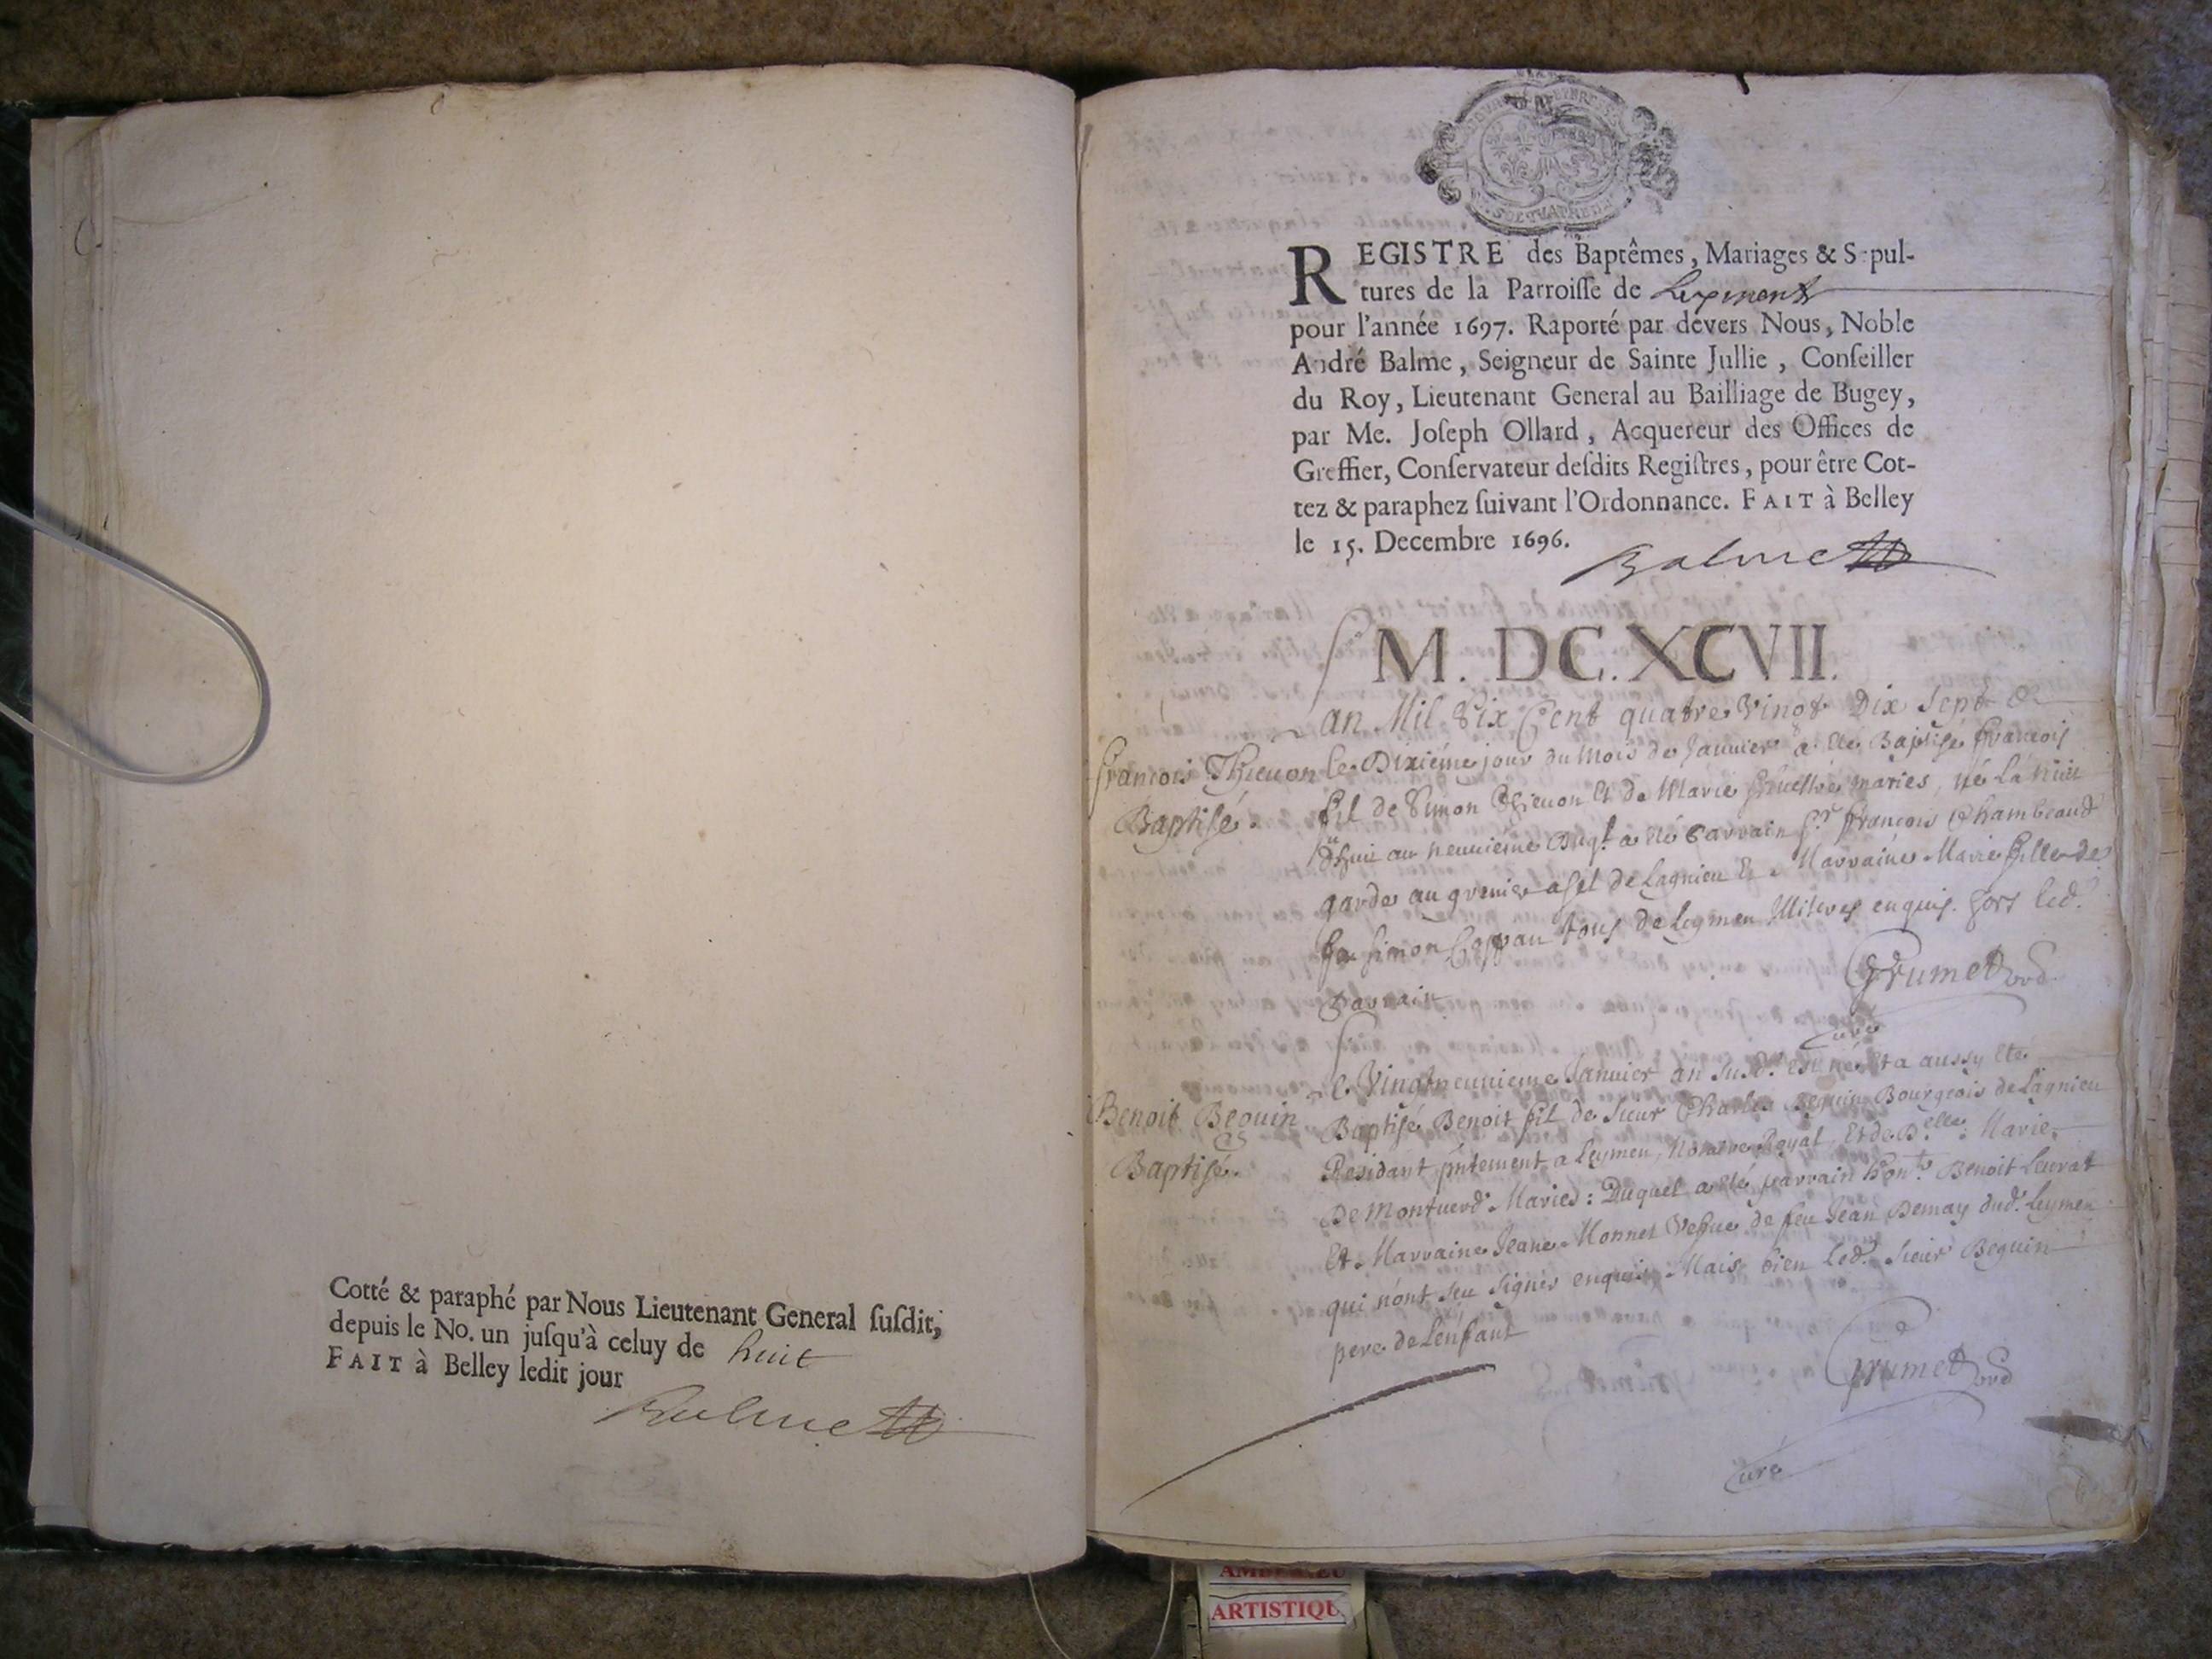 Cotté & paraphé par Nous Lieutenant General ſuſdit,
depuis le No. un juſqu'à celuy de huit
FAIT à Belley ledit jour
Balme
REGISTRE des Baptêmes, Mariages & Sepul-
tures de la Parroiſſe de Leyment
pour l'année 1697. Raporté par devers Nous, Noble
André Balme, Seigneur de Sainte Jullie, Conſeiller
du Roy, Lieutenant General au Bailliage de Bugey,
par Me. Joſeph Ollard, Acquereur des Offices de
Greffier, Conſervateur deſdits Regiſtres, pour être Cot-
tez & paraphez ſuivant l'Ordonnance. FAIT à Belley
le 15. Decembre 1696.
Balme
M. DC. XCVII.
an Mil Six Cent quatre Vingt Dix Sept &
francois Thieuon
Baptisé.
le Dixiéme jour du Mois de Januier a été Baptisé francois
fil de Simon Thieuon Et de Marie mariés, né la nuit
au neuuiéme Duql. a été Parrain Sr. francois Chambeaud
garde au grenier a sel de Lagnieu Et Marraine Marie fille de
feu Simon tous de Leymen Illiteres enquis. hors led.
Parrain
Grumet
Curé
Benoit Beguin
Baptisé.
Le Vingtneuuieme Januier an susd. est né Et a aussy été
Baptisé Benoit fil de Sieur Charles Beguin Bourgeois de Lagnieu
Residant pntement a Leymen, Notaire Royal, Et de Delle. Marie
De Montuerd Mariés: Duquel a été parrain hont. Benoit Leurat
Et Marraine Jeane Monnet Vefue de feu Jean Demay dud. Leymen
qui n'ont seu signer enquis, Mais bien led. Sieur Beguin
pere de L'enfant
Grumet
Curé
AMBERIEU
ARTISTIQU